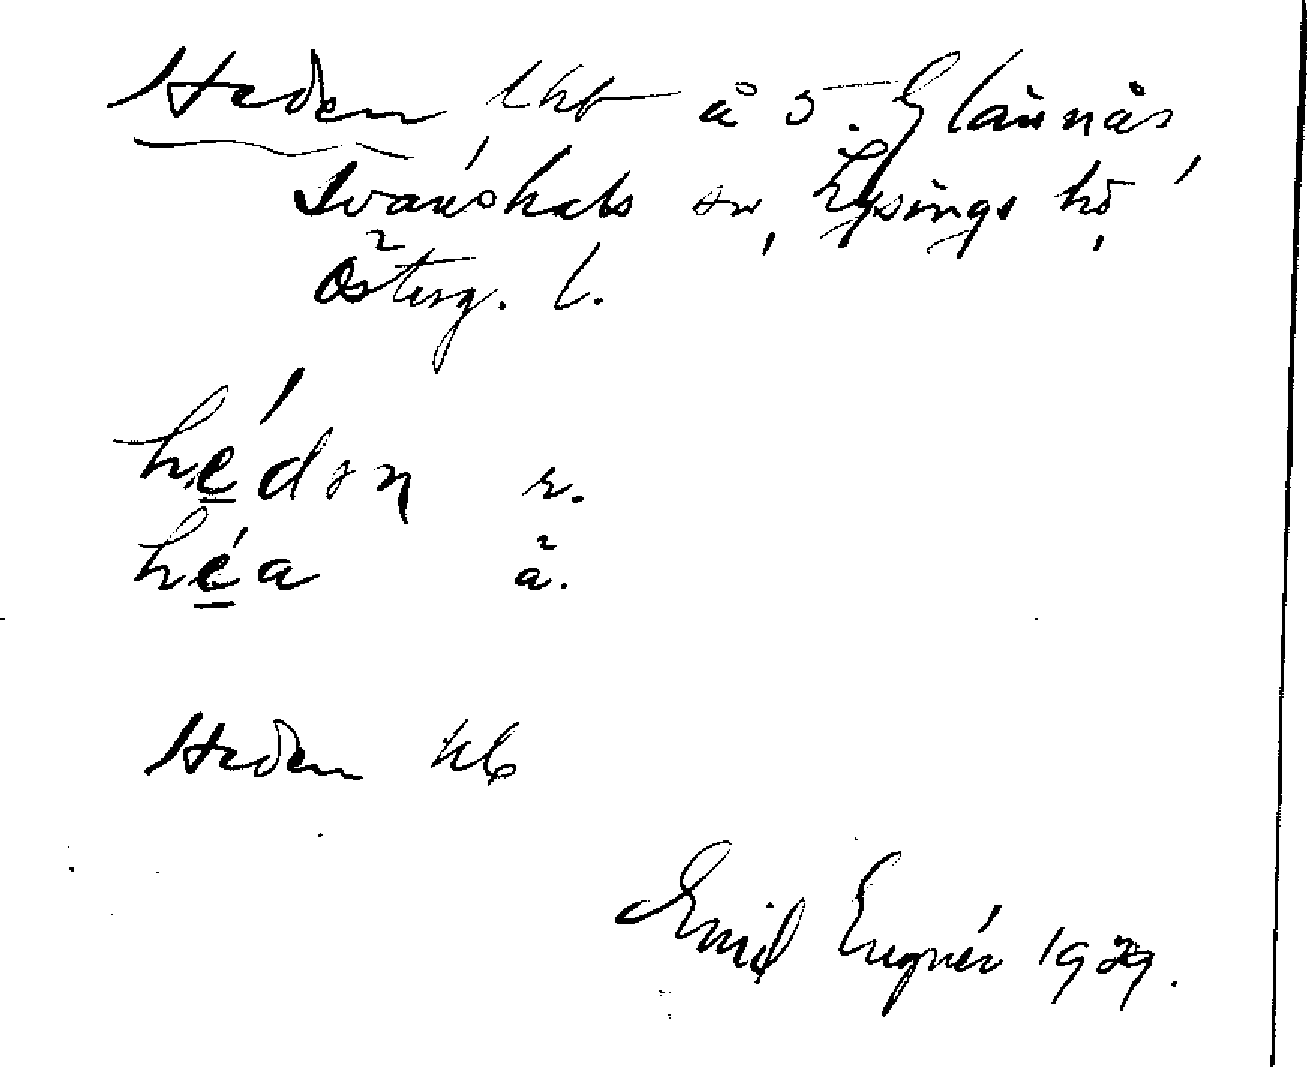 Heden lht å S. Glännäs,
Svanshals sn, Lysings hd,
Österg. l.
hédən r.
héa ä.
Heden kb
Emil Engnér 1929.